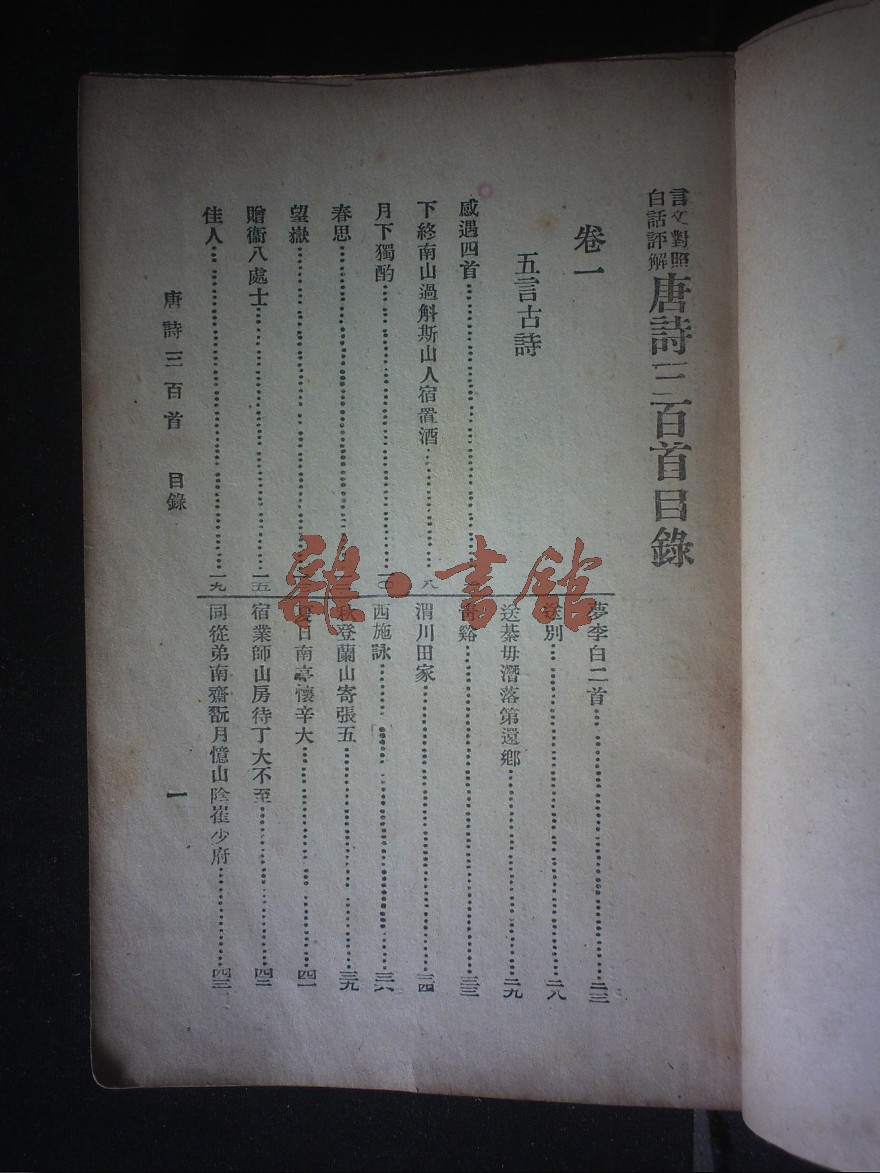 言文對照
白話評解
唐詩三百首目錄
卷一
五言古詩
感遇四首
下終南山過斛斯山人宿置酒 八
月下獨酌 一〇
春思
望嶽
贈衞八處士 一五
佳人 一九
夢李白二首 二三
送別 二八
送綦毋潛落第還鄉 二九
青谿 三三
渭川田家 三四
西施詠 三六
秋登蘭山寄張五 三九
夏日南亭懷辛大 四一
宿業師山房待丁大不至 四二
同從弟南齋翫月憶山陰崔少府 四三
唐詩三百首 目錄 一
雜·書館